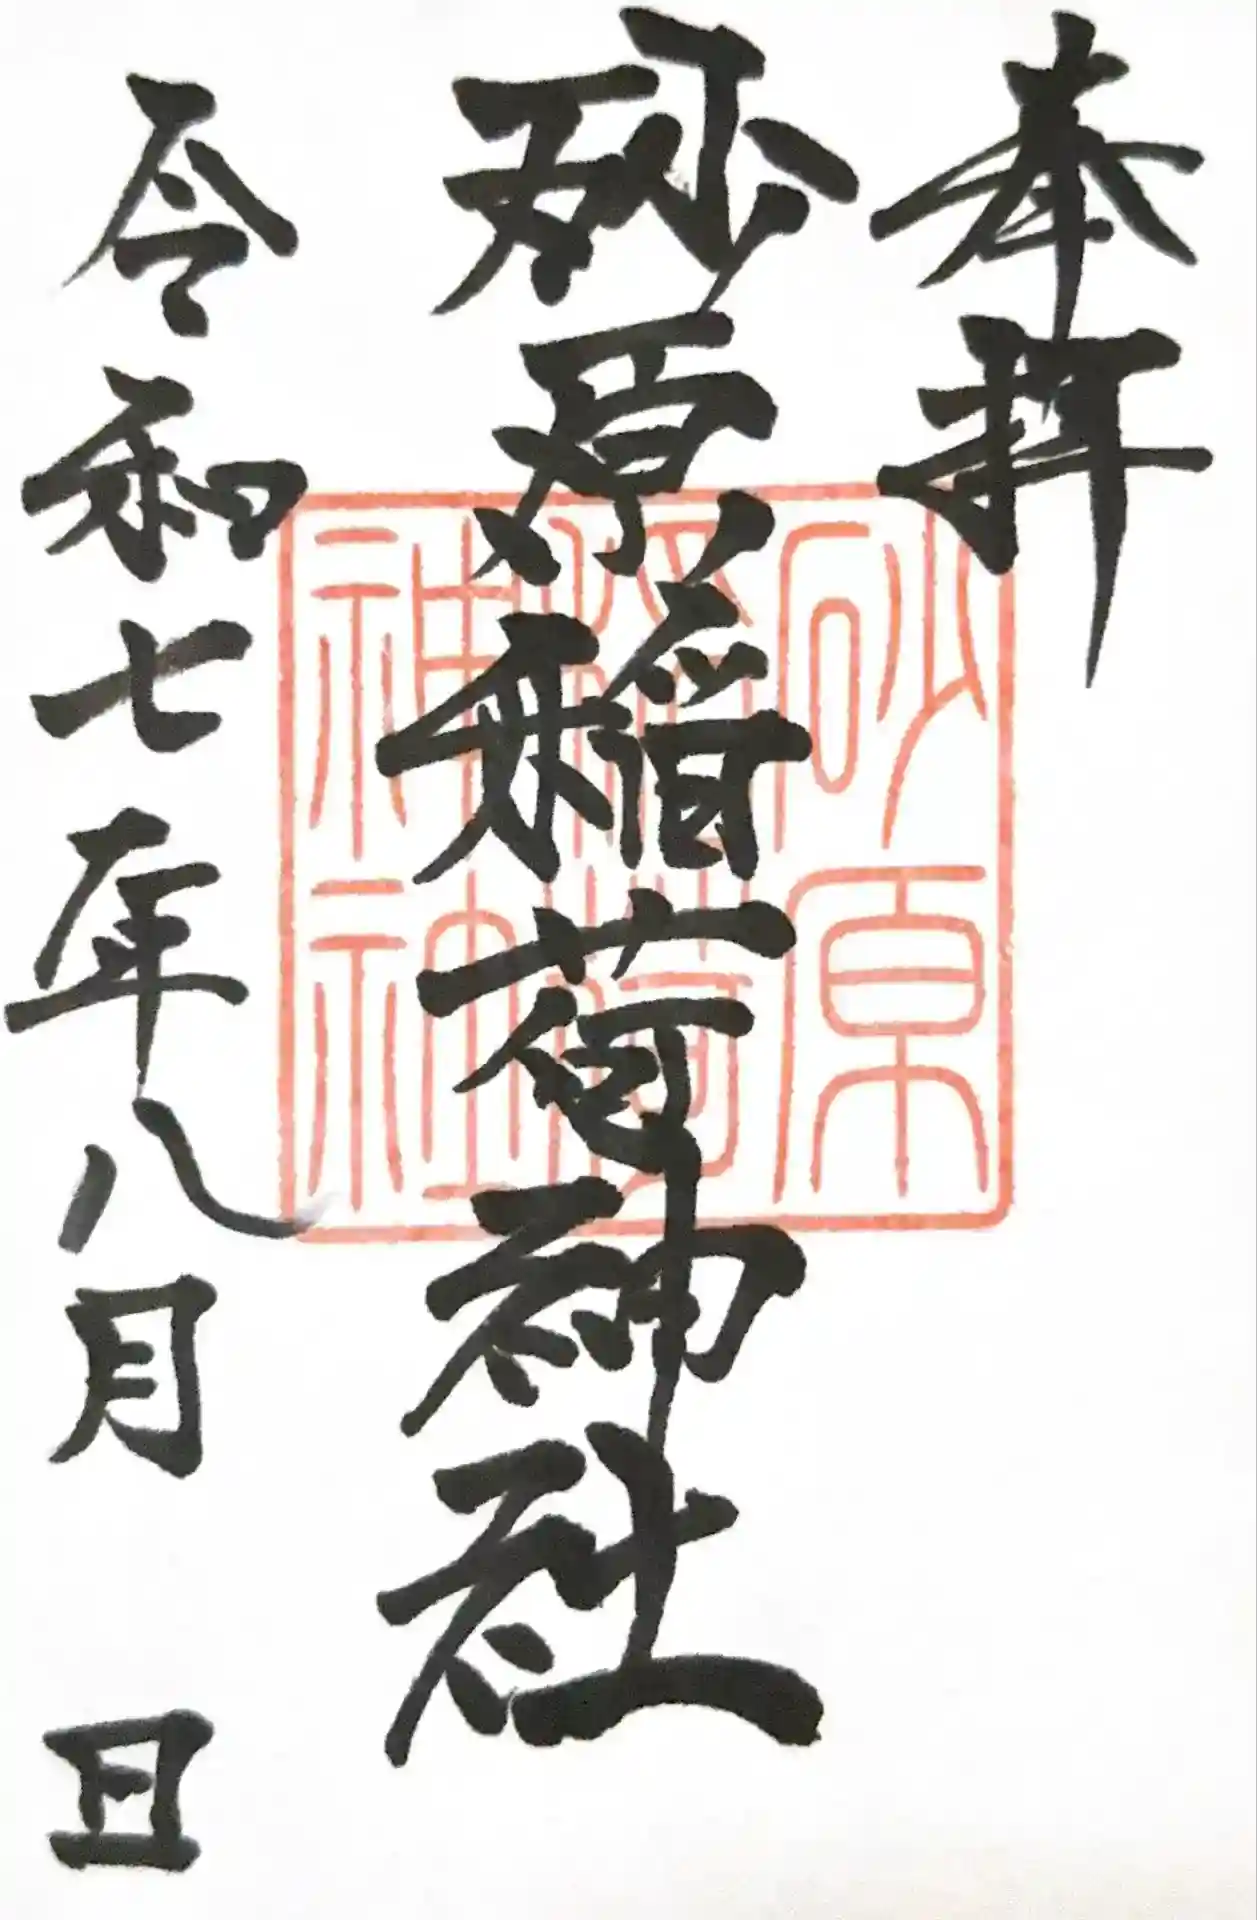 奉拝
砂原稲荷神社
砂原
稲荷
神社
令和七年八月 日